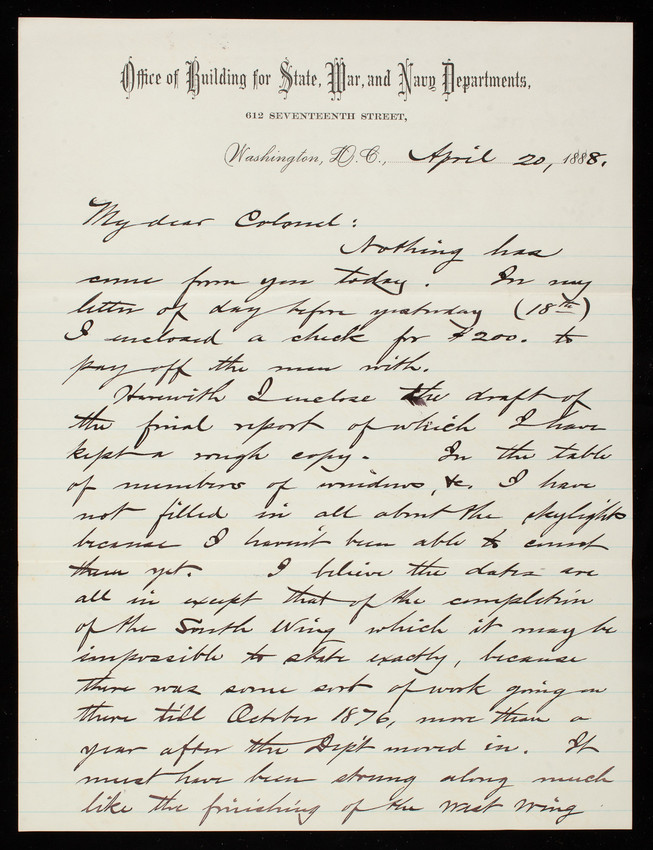 Office of Building for State, War, and Navy Departments,
612 SEVENTEENTH STREET,
Washington, D.C., April 20, 1888.
My dear Colonel:
Nothing has
come from you today. In my
letter of day before yesterday (18th)
I enclosed a check for $200. to
pay off the men with.
Herewith I enclose the draft of
the final report of which I have
kept a rough copy. In the table
of numbers of windows, &c. I have
not filled in all about the skylights
because I haven't been able to count
them yet. I believe the dates are
all in except that of the completion
of the South Wing which it may be
impossible to state exactly, because
there was some sort of work going on
there till October 1876, more than a
year after the Dep't moved in. It
must have been strung along much
like the finishing of the West Wing